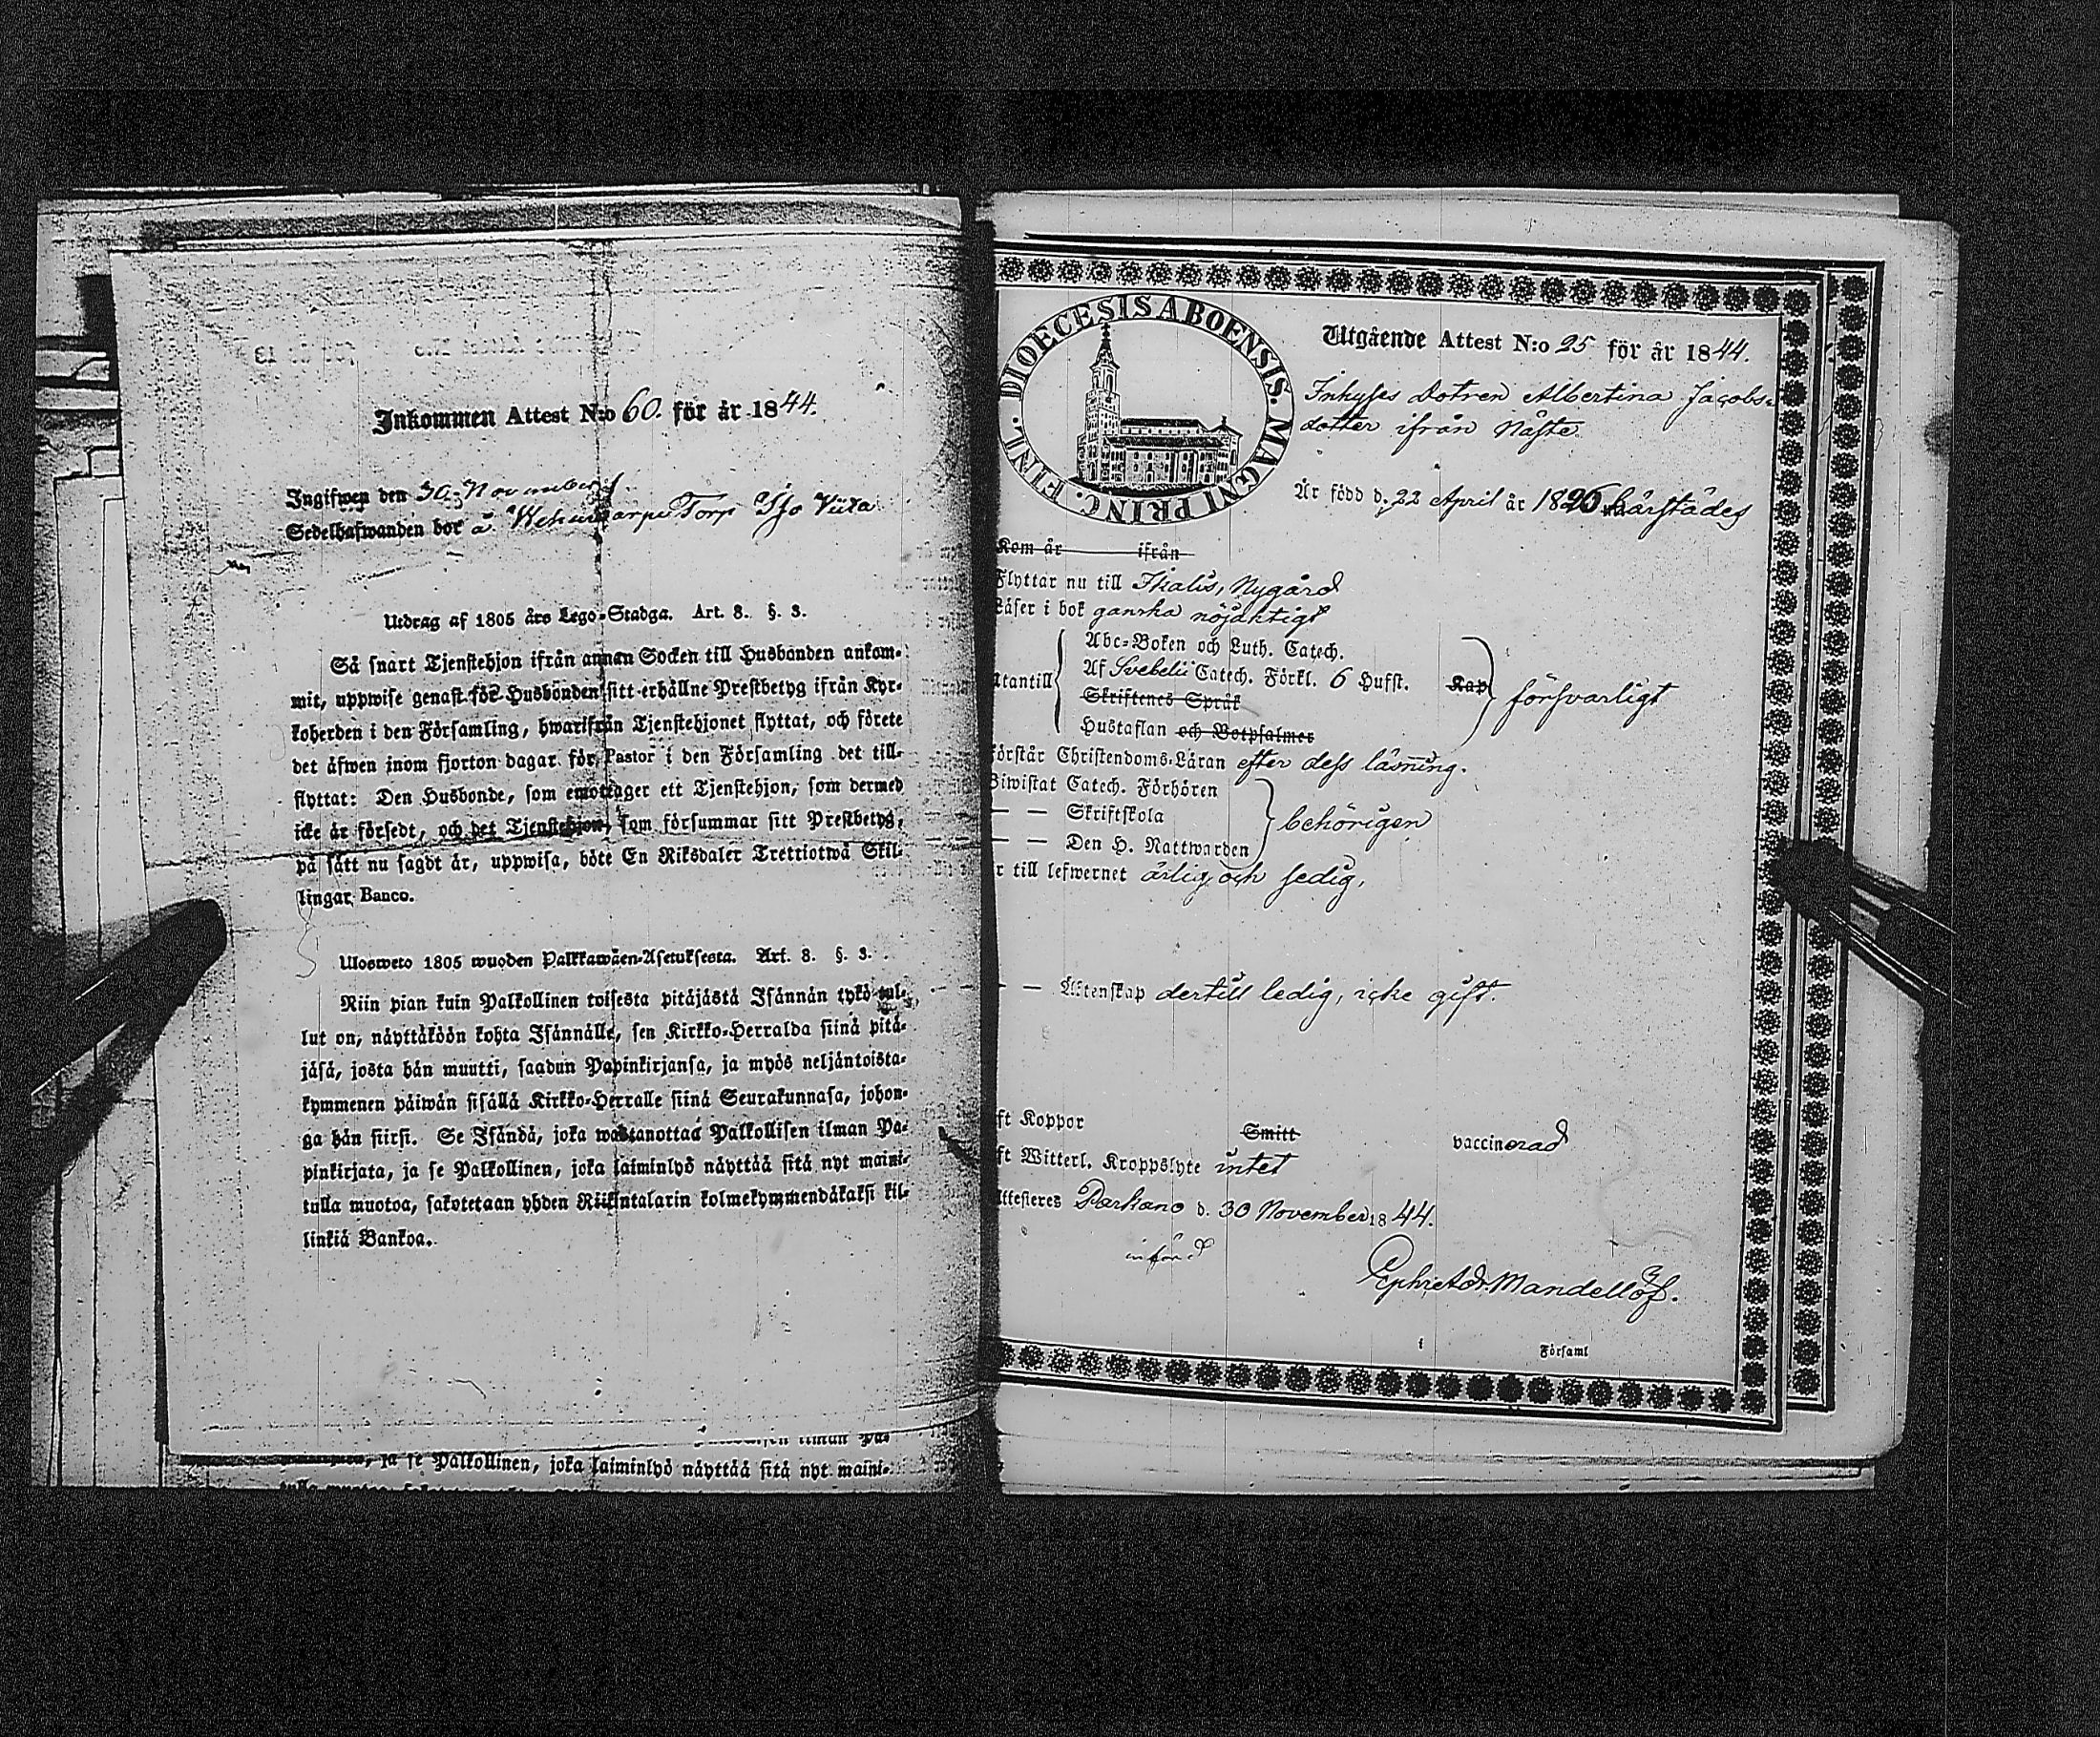 Inkommen Attest N:o 60. för år 1844.
Ingifwen den 30 November
Sedelhafwanden bor å Torp Iso Viita
Utdrag af 1805 års Lego-Stadga. Art. 8. §. 3.
Så snart Tjenstehjon ifrån annan Socken till Husbonden ankom-
mit, uppwise genast för Husbonden sitt erhållne Prestbetyg ifrån Kyr-
koherden i den Församling, hwarifrån Tjenstehjonet flyttat, och förete
det äfwen inom fjorton dagar för Pastor i den Församling det till-
flyttat: Den Husbonde, som emottager ett Tjenstehjon, som dermed
icke är försedt, och det Tjenstehjon, som försummar sitt Prestbetyg,
på sätt nu sagdt är, uppwisa, böte En Riksdaler Trettiotwå Skil-
lingar Banco.
Ulosweto 1805 wuoden Palkkawäen-Asetuksesta. Art. 8. §. 3.
Niin pian kuin Palkollinen toisesta pitäjästä Isännän tykö tul-
lut on, näyttäköön kohta Isännälle, sen Kirkko-Herralda siinä pitä-
jäsä, josta hän muutti, saadun Papinkirjansa, ja myös neljäntoista-
kymmenen päiwän sisällä Kirkko-Herralle siinä Seurakunnasa, johon-
ga hän siirsi. Se Isändä, joka wastanottaa Palkollisen ilman Pa-
pinkirjata, ja se Palkollinen, joka laiminlyö näyttää sitä nyt maini-
tulla muotoa, sakotetaan yhden Riikintalarin kolmekymmendäkaksi kil-
linkiä Bankoa.
ja se Palkollinen, joka laiminlyö näyttää sitä nyt maini-
DIOECESIS ABOENSIS. MAGNI PRINC. FINL.
Utgående Attest N:o 25 för år 1844.
Inhyses Dotren Albertina Jacobs-
dotter ifrån Näste.
Är född d. 22 April år 1826 härstädes
Kom år ifrån
Flyttar nu till Ikalis, Nygård
Läser i bok ganska nöjaktigt
Abc-Boken och Luth. Catech.
utantill Af Svebelii Catech. Förkl. 6 Hufst. Kap försvarligt
Skriftenes Språk
Hustaflan och Botpsalmer
Förstår Christendoms-Läran efter dess läsning.
Biwistat Catech. Förhören
— — Skriftskola behörigen
— — Den H. Nattwarden
r till lefwernet ärlig och sedig,
— — Äktenskap dertill ledig, icke gift.
ft Koppor Smitt vaccinerad
ft Witterl. Kroppslyte intet
Attesteres Parkano d. 30 November 1844.
införd
Mandellöf.
Församl